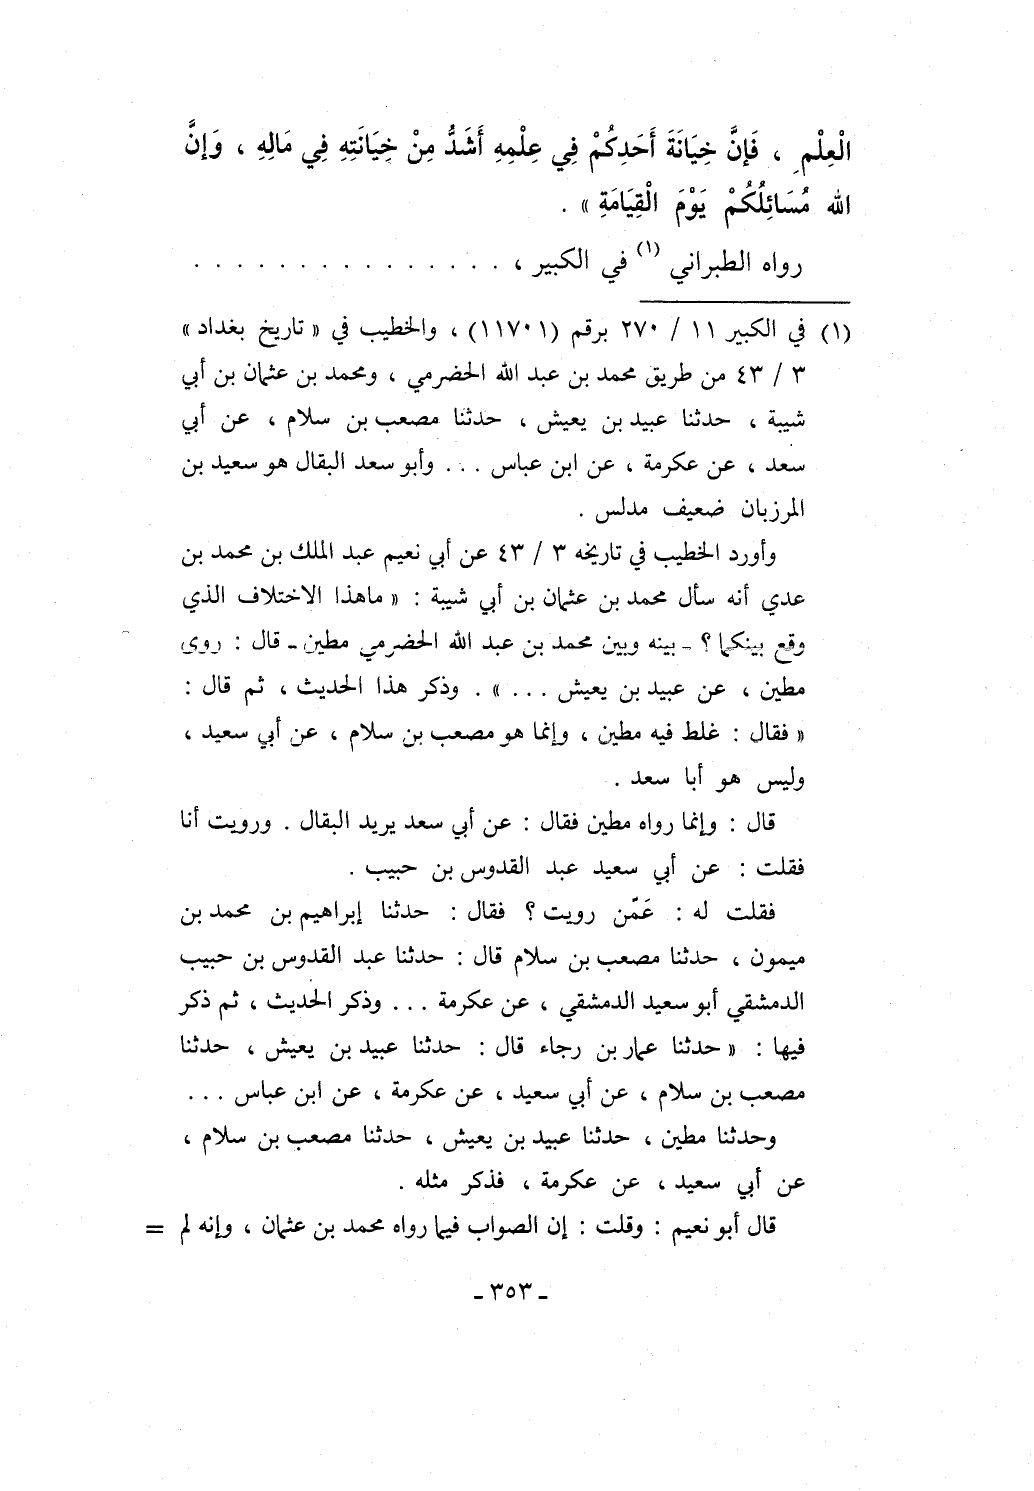 الْعِلْمِ ، فَإِنَّ خِيَانَةَ أَحَدِكُمْ فِي عِلْمِهِ أَشَدُّ مِنْ خِيَانَتِهِ فِي مَالِهِ ، وَإِنَّ
الله مُسَائِلُكُمْ يَوْمَ الْقِيَامَةِ » .
رواه الطبراني (١) في الكبير ، . . . . . . . . . . . . . . .
(١) في الكبير ١١ / ٢٧٠ برقم (١١٧٠١) ، والخطيب في « تاريخ بغداد »
٣ / ٤٣ من طريق محمد بن عبد الله الحضرمي ، ومحمد بن عثمان بن أبي
شيبة ، حدثنا عبيد بن يعيش ، حدثنا مصعب بن سلام ، عن أبي
سعد ، عن عكرمة ، عن ابن عباس ... وأبو سعد البقال هو سعيد بن
المرزبان ضعيف مدلس .
وأورد الخطيب في تاريخه ٣ / ٤٣ عن أبي نعيم عبد الملك بن محمد بن
عدي أنه سأل محمد بن عثمان بن أبي شيبة : « ماهذا الاختلاف الذي
وقع بينكما ؟ ـ بينه وبين محمد بن عبد الله الحضرمي مطين ـ قال : روى
مطين ، عن عبيد بن يعيش ... » . وذكر هذا الحديث ، ثم قال :
« فقال : غلط فيه مطين ، وإنما هو مصعب بن سلام ، عن أبي سعيد ،
وليس هو أبا سعد .
قال : وإنما رواه مطين فقال : عن أبي سعد يريد البقال . ورويت أنا
فقلت : عن أبي سعيد عبد القدوس بن حبيب .
فقلت له : عَمّن رويت ؟ فقال : حدثنا إبراهيم بن محمد بن
ميمون ، حدثنا مصعب بن سلام قال : حدثنا عبد القدوس بن حبيب
الدمشقي أبو سعيد الدمشقي ، عن عكرمة ... وذكر الحديث ، ثم ذكر
فيها : « حدثنا عمار بن رجاء قال : حدثنا عبيد بن يعيش ، حدثنا
مصعب بن سلام ، عن أبي سعيد ، عن عكرمة ، عن ابن عباس ...
وحدثنا مطين ، حدثنا عبيد بن يعيش ، حدثنا مصعب بن سلام ،
عن أبي سعيد ، عن عكرمة ، فذكر مثله .
قال أبو نعيم : وقلت : إن الصواب فيما رواه محمد بن عثمان ، وإنه لم =
ـ ٣٥٣ ـ